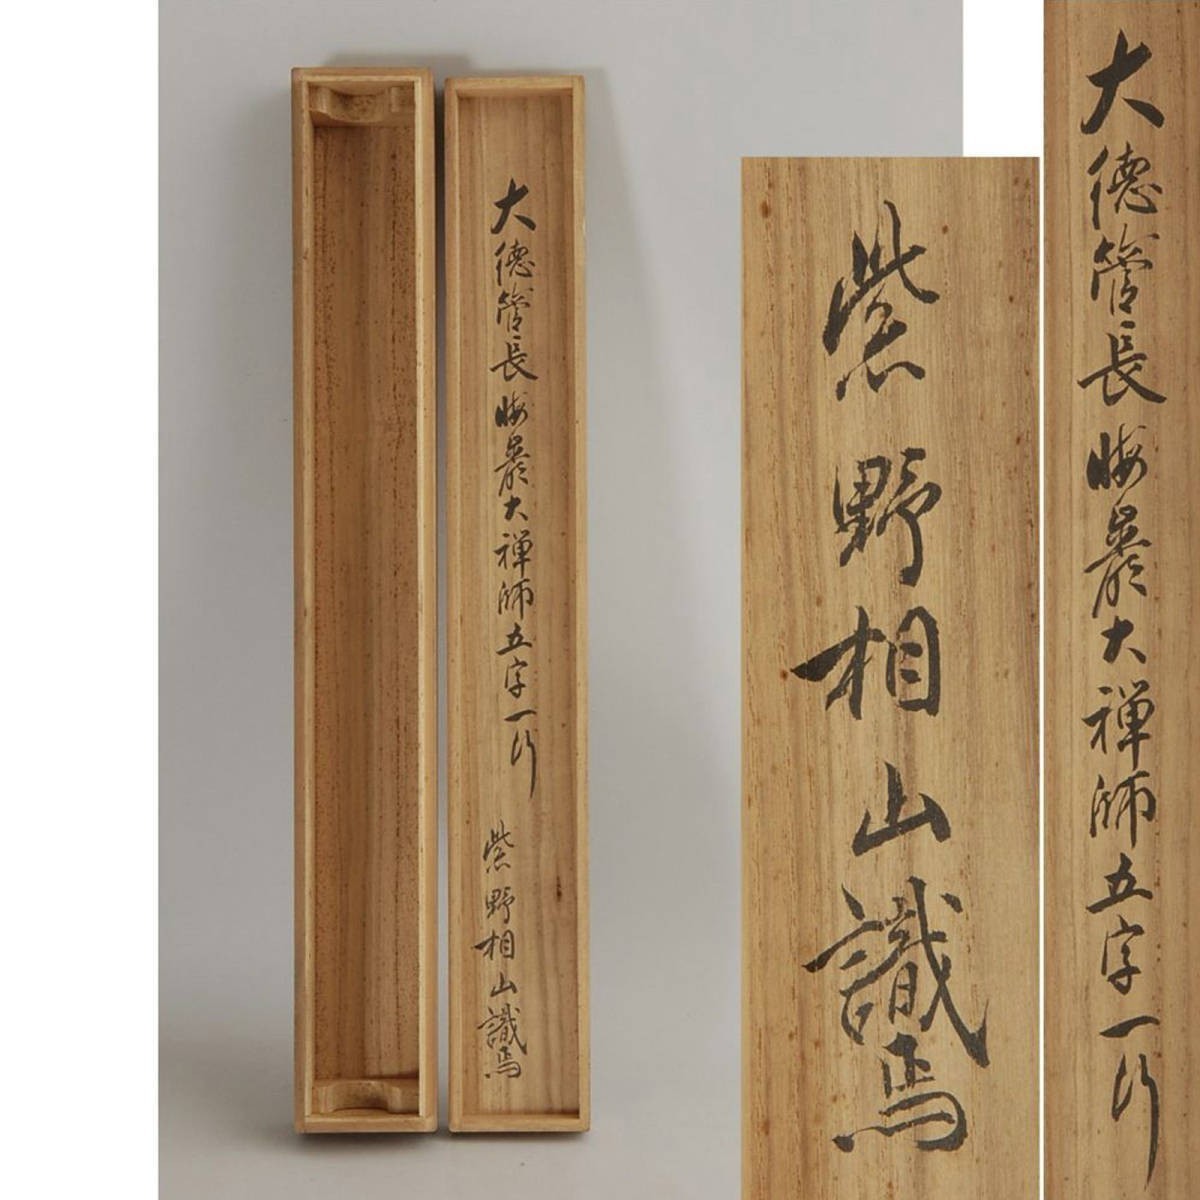 大徳管長晦巖大禅師五字一行
紫野相山識焉
紫野相山識焉
大徳管長晦巖大禅師五字一行